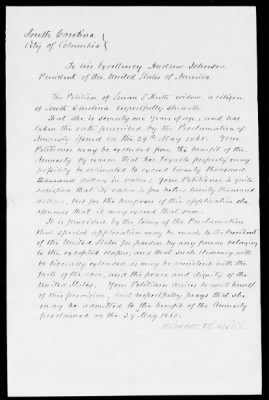 South Carolina
City of Columbia
To his Excellency Andrew Johnson
President of the United States of America.
The Petition of Susan S Keith widow, a citizen
of South Carolina respectfully sheweth
That she is seventy one years of age, and has
taken the oath prescribed by the Proclamation of
Amnesty issued on the 29th May 1865. Your
Petitioner may be excluded from the benefit of the
Amnesty by reason that her taxable property may
possibly be estimated to exceed twenty thousand
thousand dollars in value. Your Petitioner is quite
satisfied that its value is far below twenty thousand
dollars, but for the purposes of this application she
assumes that it may exceed that sum.
It is provided by the terms of the Proclamation
that special application may be made to the President
of the United States for pardon by any person belonging
to the excepted classes, and that such clemency will
be liberally extended as may be consistent with the
facts of the case, and the peace and dignity of the
United States. Your Petitioner desires to avail herself
of this provision, and respectfully prays that she
may be admitted to the benefit of the Amnesty
proclaimed on the 29th May 1865.